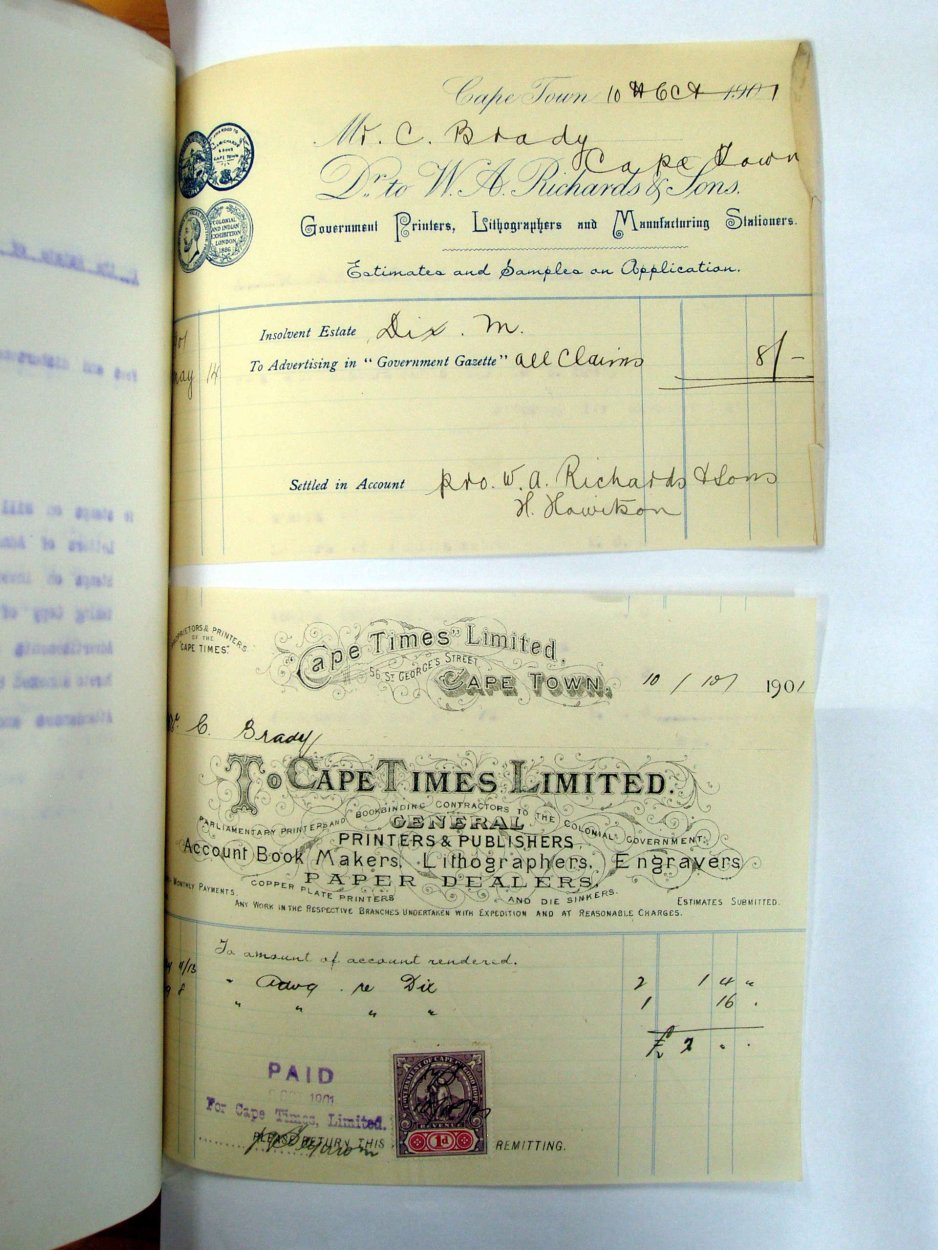 Cape Town 10 Oct 1901
Mr. C. Brady
Cape Town
Dr. to W. A. Richards & Sons.
Government Printers, Lithographers and Manufacturing Stationers.
Estimates and Samples on Application.
COLONIAL AND INDIAN EXHIBITION LONDON 1886
Insolvent Estate Dix. M.
May 14 To Advertising in "Government Gazette" all Claims 8/-
Settled in Account pro. W. A. Richards & Sons
H. Howitson
PROPRIETORS & PRINTERS OF THE "CAPE TIMES"
"Cape Times" Limited,
56 ST GEORGE'S STREET
CAPE TOWN, 10/10/ 1901
C. Brady
TO CAPE TIMES LIMITED.
PARLIAMENTARY PRINTERS AND BOOKBINDING CONTRACTORS TO THE COLONIAL GOVERNMENT,
GENERAL
PRINTERS & PUBLISHERS,
Account Book Makers, Lithographers, Engravers
PAPER DEALERS,
MONTHLY PAYMENTS. COPPER PLATE PRINTERS AND DIE SINKERS. ESTIMATES SUBMITTED.
ANY WORK IN THE RESPECTIVE BRANCHES UNDERTAKEN WITH EXPEDITION AND AT REASONABLE CHARGES.
To amount of account rendered.
" Advg. re Dix 2 1 4 "
" " " " 1 16 .
£ 2 " .
PAID
OCT 1901
For Cape Times, Limited.
PLEASE RETURN THIS REMITTING.
GOVERNMENT OF CAPE OF GOOD HOPE
REVENUE
1d